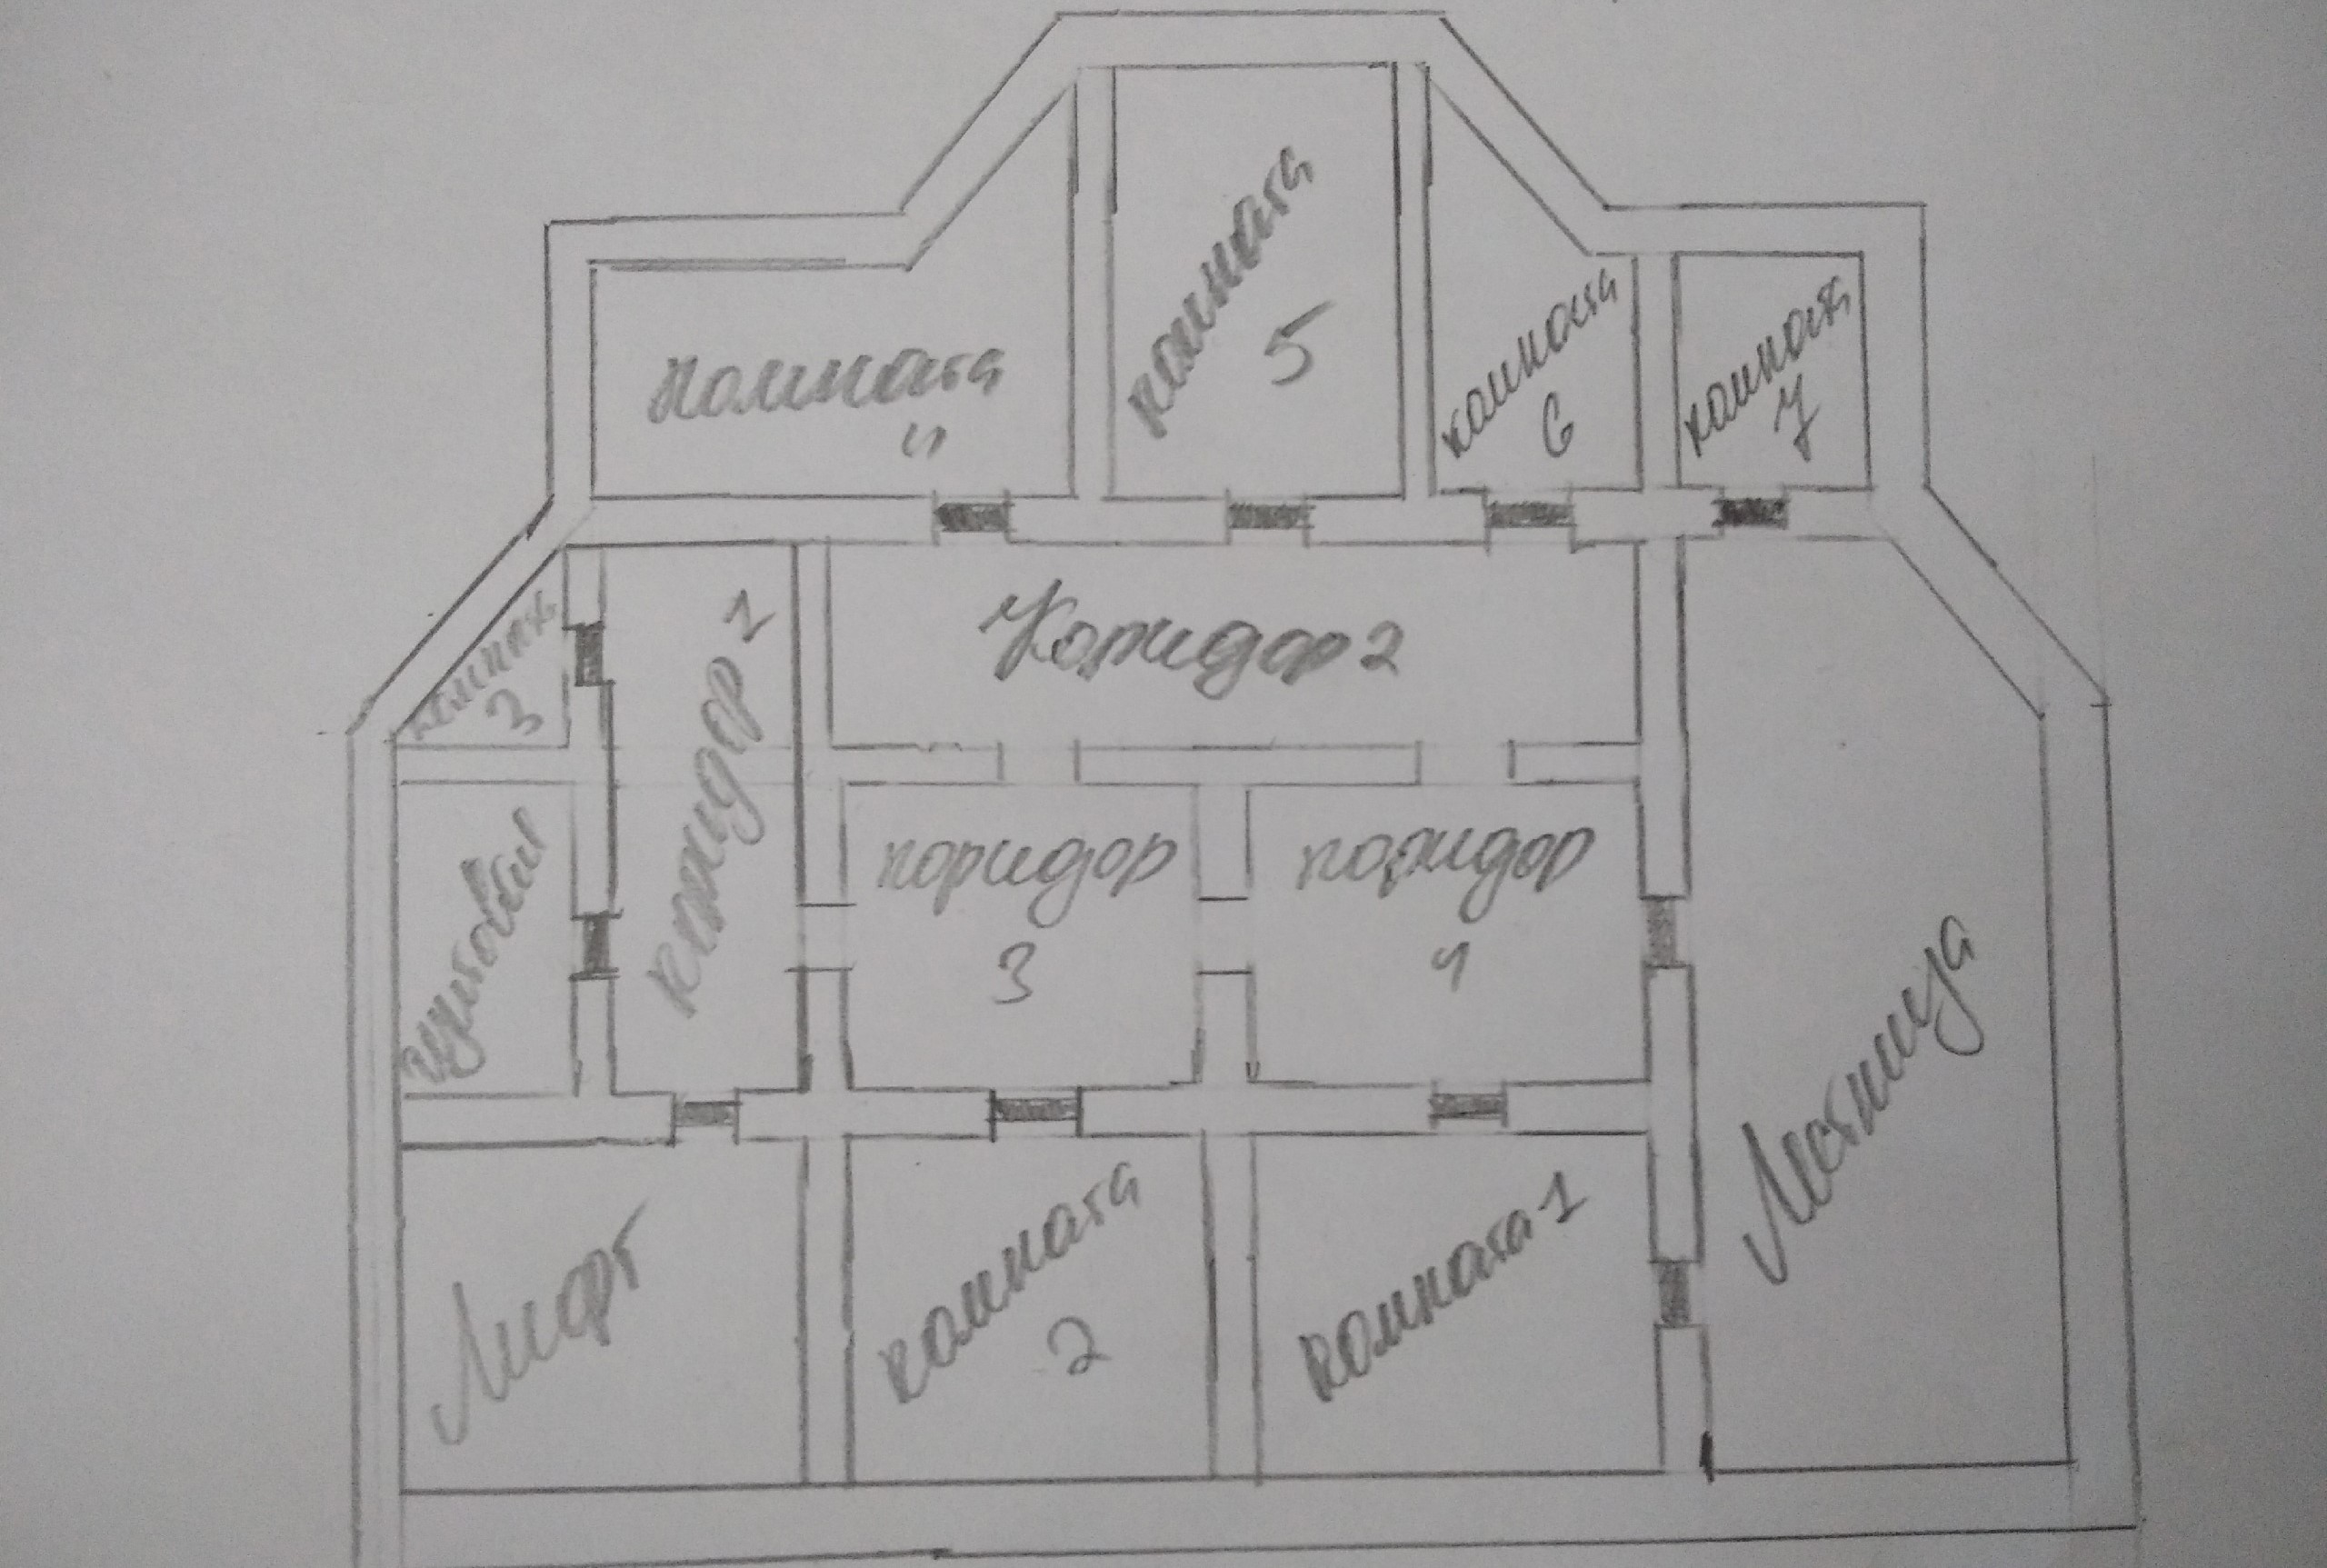 комната
4
комната
5
комната
6
комната
7
комната
3
коридор 1
Коридор 2
щитовая
коридор
3
коридор
4
Лестница
Лифт
комната
2
комната 1